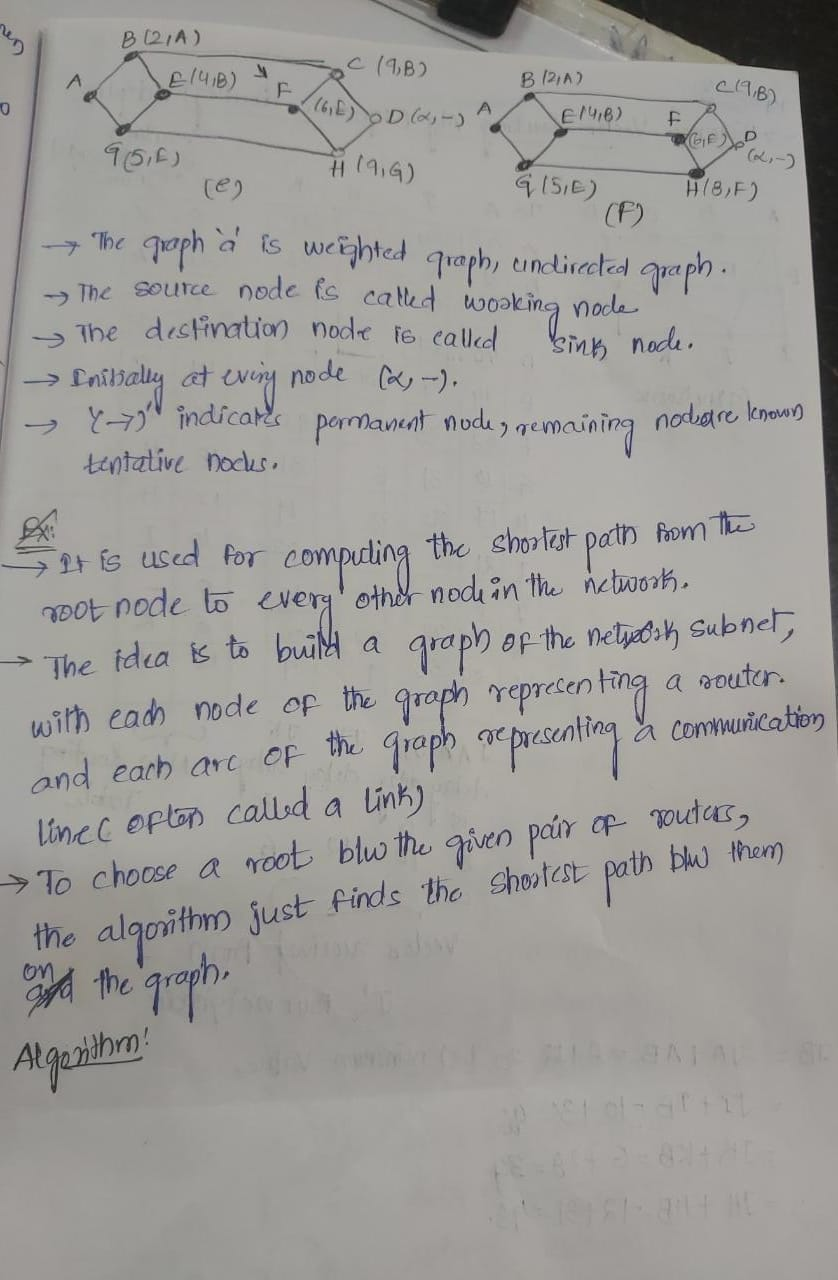 B (2,A)
C (9,B)
A
E (4,B)
F
(6,E)
D (α,-)
G (5,E)
H (9,G)
(e)
B (2,A)
C (9,B)
A
E (4,B)
F
(6,E)
D
(α,-)
G (5,E)
H (8,F)
(F)
→ The graph 'a' is weighted graph, undirected graph.
→ The source node is called working node
→ The destination node is called sink node.
→ Initially at every node (α,-).
→ indicates permanent node, remaining node are known
tentative nodes.
Ex:
→ It is used for computing the shortest path from the
root node to every other node in the network.
→ The idea is to build a graph of the network subnet,
with each node of the graph representing a router.
and each arc of the graph representing a communication
line( often called a link)
→ To choose a root b/w the given pair of routers,
the algorithm just finds the shortest path b/w them
on the graph.
Algorithm: